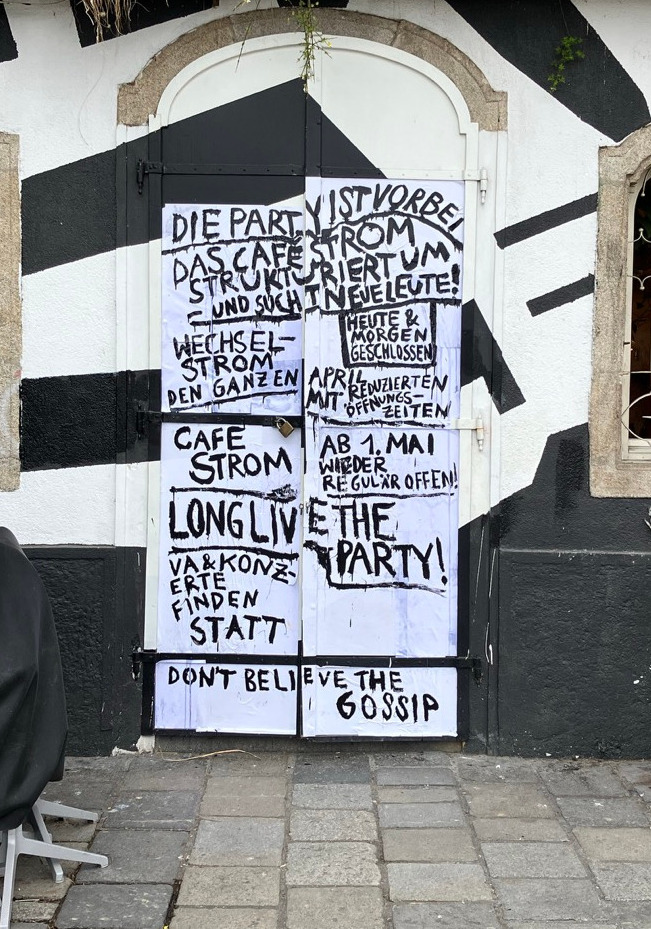 DIE PARTY IST VORBEI
DAS CAFÉ STROM
STRUKTURIERT UM
UND SUCHT NEUE LEUTE!
HEUTE &
MORGEN
GESCHLOSSEN
WECHSEL-
STROM
DEN GANZEN
APRIL
MIT REDUZIERTEN
ÖFFNUNGS-
ZEITEN
CAFE
STROM
AB 1. MAI
WIEDER
REGULÄR OFFEN!
LONG LIVE THE
PARTY!
VA & KONZ-
ERTE
FINDEN
STATT
DON'T BELIEVE THE
GOSSIP